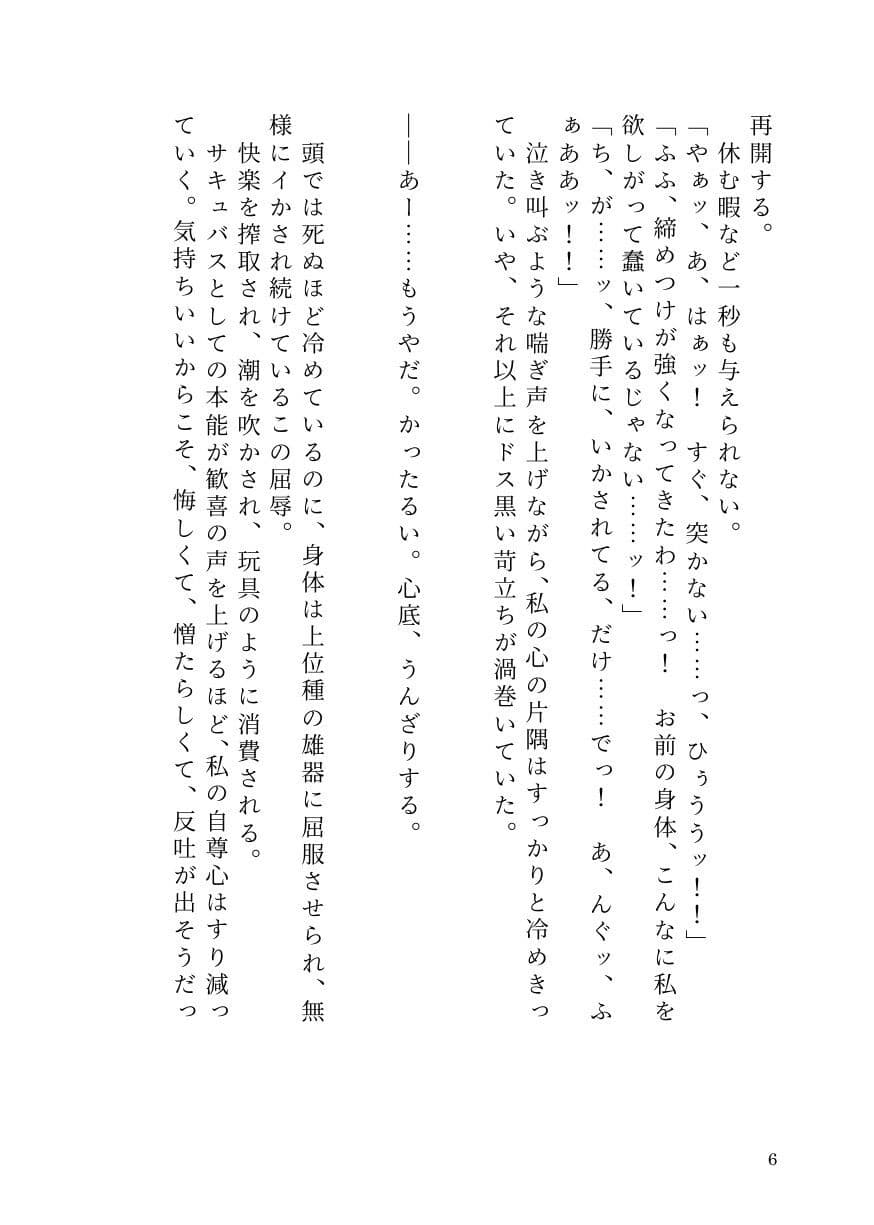 再開する。
　休む暇など一秒も与えられない。
「やぁッ、あ、はぁッ！　すぐ、突かない……っ、ひぅううッ！！」
「ふふ、締めつけが強くなってきたわ……っ！　お前の身体、こんなに私を
欲しがって蠢いているじゃない……ッ！」
「ち、が……ッ、勝手に、いかされてる、だけ……でっ！　あ、んぐッ、ふ
ぁああッ！！」
　泣き叫ぶような喘ぎ声を上げながら、私の心の片隅はすっかりと冷めきっ
ていた。いや、それ以上にドス黒い苛立ちが渦巻いていた。
――あー……もうやだ。かったるい。心底、うんざりする。
　頭では死ぬほど冷めているのに、身体は上位種の雄器に屈服させられ、無
様にイかされ続けているこの屈辱。
　快楽を搾取され、潮を吹かされ、玩具のように消費される。
　サキュバスとしての本能が歓喜の声を上げるほど、私の自尊心はすり減っ
ていく。気持ちいいからこそ、悔しくて、憎たらしくて、反吐が出そうだっ
6